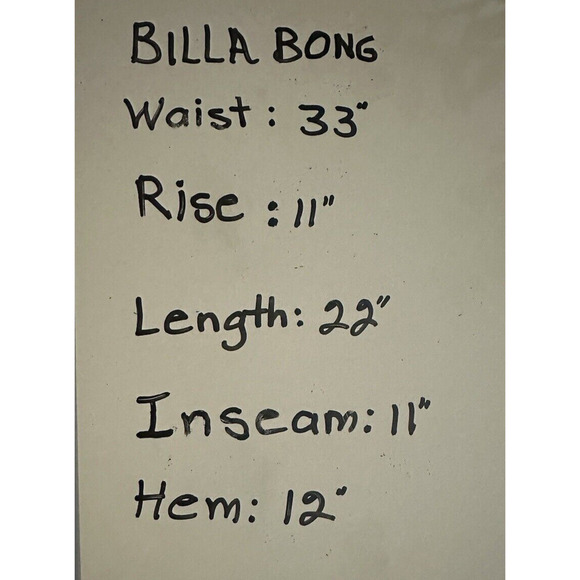 BILLA BONG
Waist: 33"
Rise: 11"
Length: 22"
Inseam: 11"
Hem: 12"